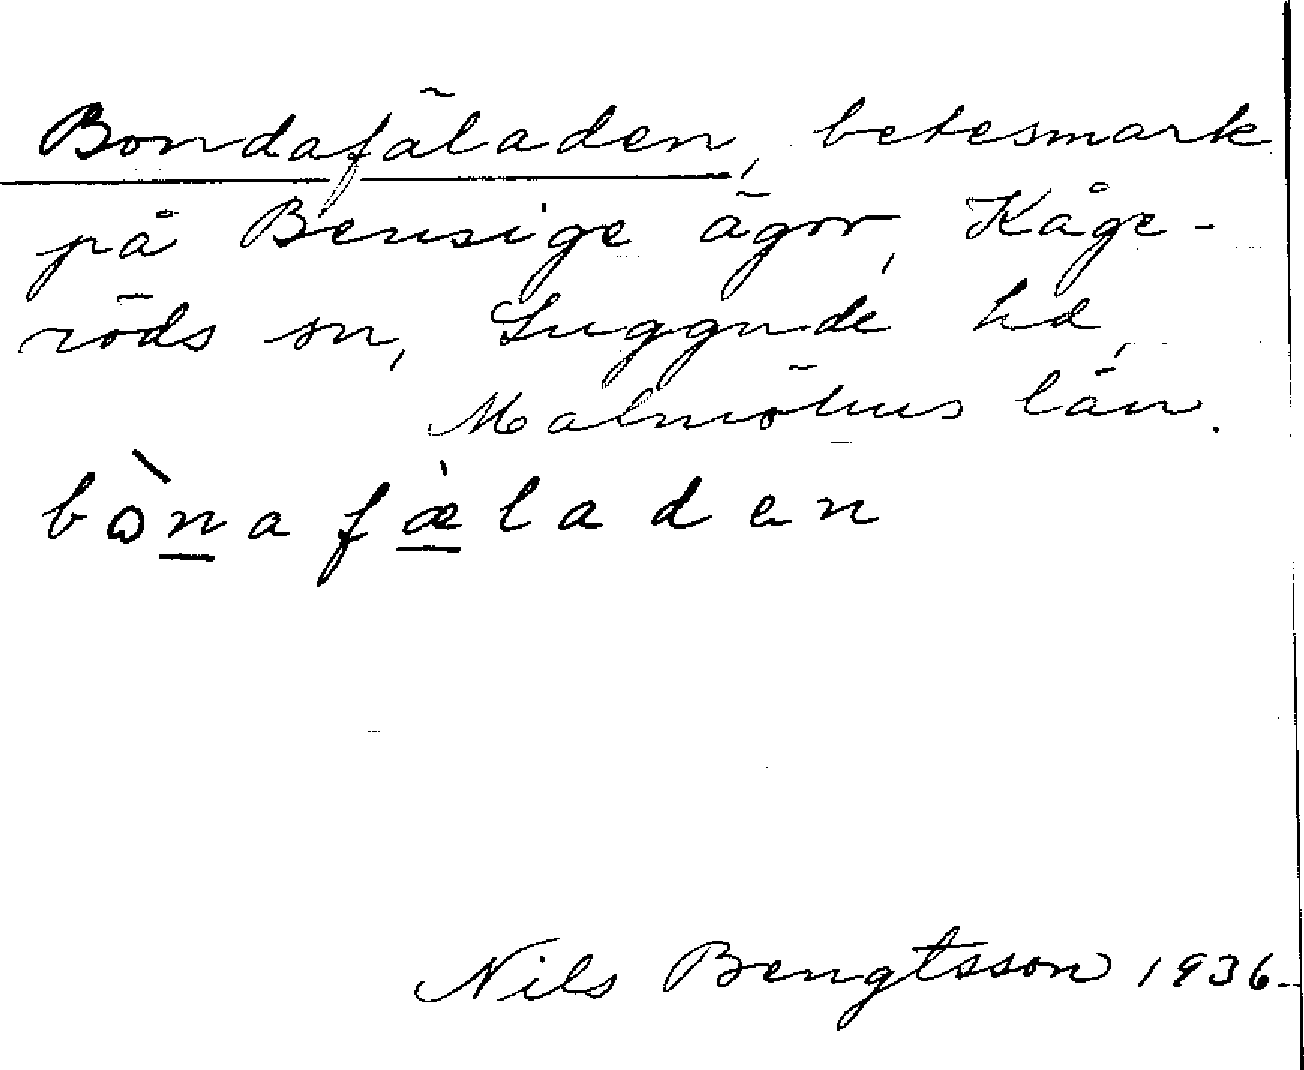 Bondafäladen, betesmark
på Bensige ägor, Kåge-
röds sn, Luggude hd,
Malmöhus län.
bònafæ̀laden
Nils Bengtsson 1936.